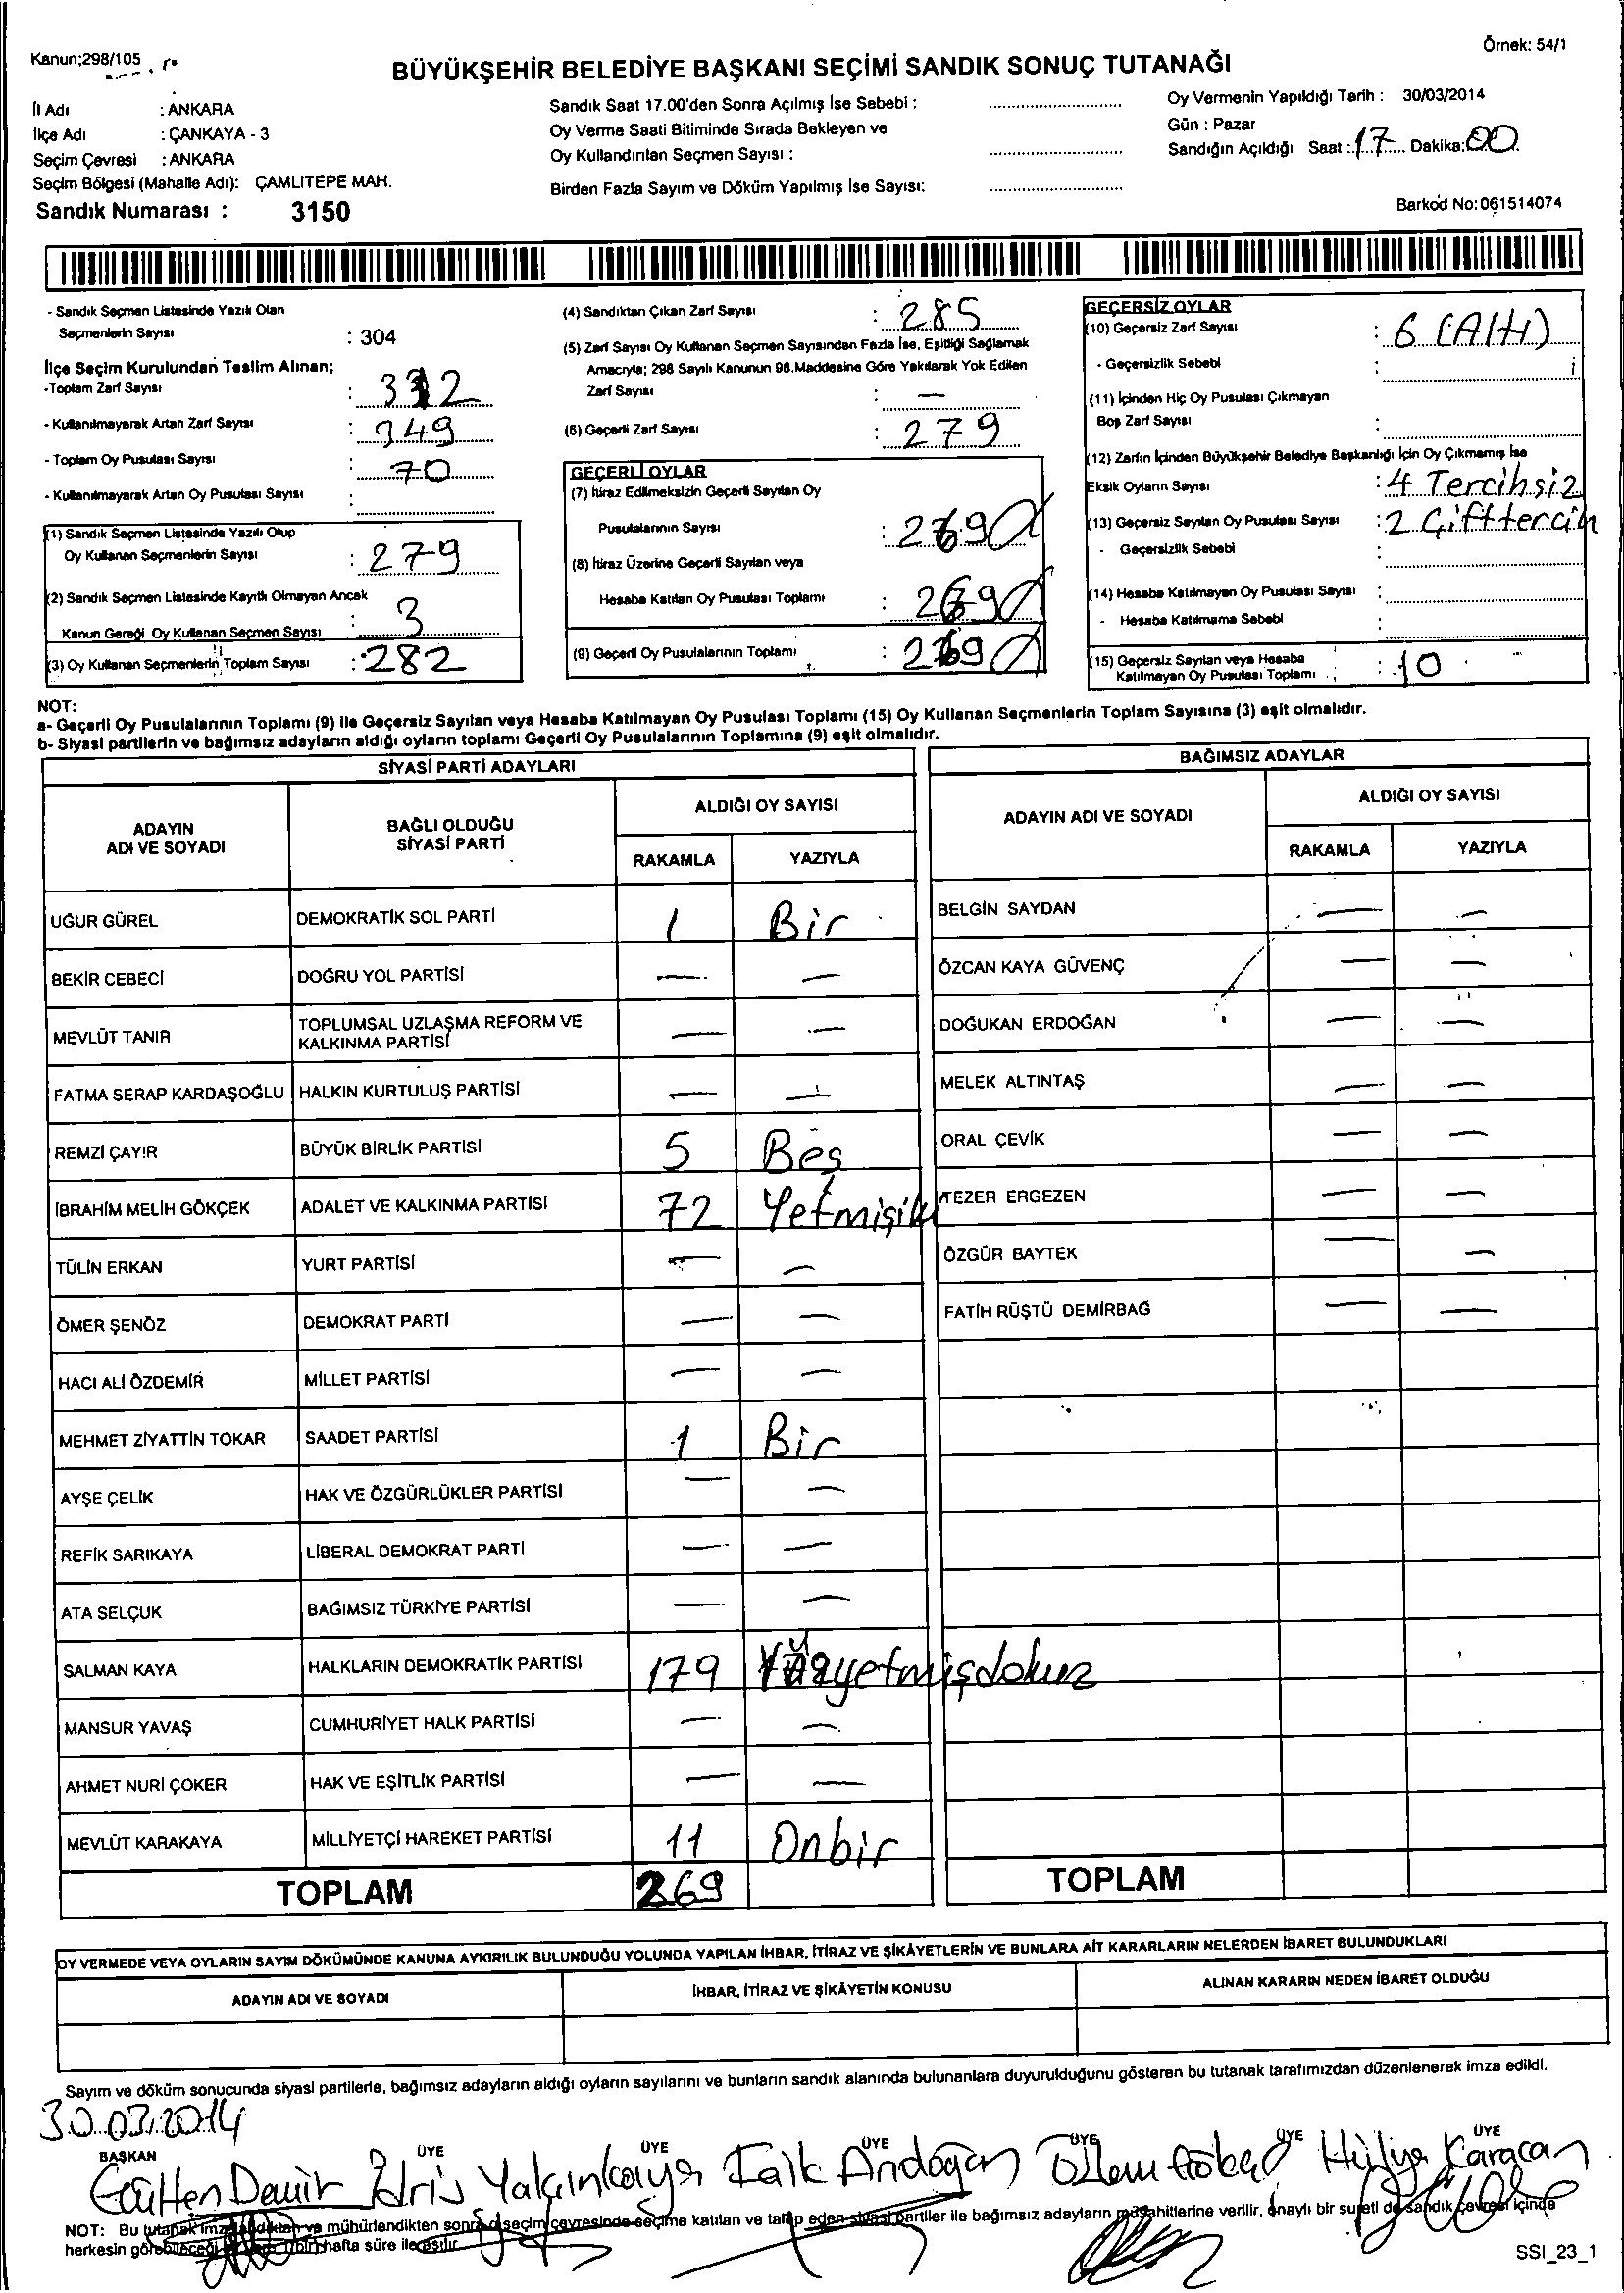 Kanun;298/105
Örnek: 54/1
BÜYÜKŞEHİR BELEDİYE BAŞKANI SEÇİMİ SANDIK SONUÇ TUTANAĞI
İl Adı : ANKARA
İlçe Adı : ÇANKAYA - 3
Seçim Çevresi : ANKARA
Seçim Bölgesi (Mahalle Adı): ÇAMLITEPE MAH.
Sandık Numarası : 3150
Sandık Saat 17.00'den Sonra Açılmış İse Sebebi :
Oy Verme Saati Bitiminde Sırada Bekleyen ve
Oy Kullandırılan Seçmen Sayısı :
Birden Fazla Sayım ve Döküm Yapılmış İse Sayısı:
Oy Vermenin Yapıldığı Tarih : 30/03/2014
Gün : Pazar
Sandığın Açıldığı Saat : 17 Dakika: 00
Barkod No:061514074
- Sandık Seçmen Listesinde Yazılı Olan
Seçmenlerin Sayısı : 304
İlçe Seçim Kurulundan Teslim Alınan;
-Toplam Zarf Sayısı :
- Kullanılmayarak Artan Zarf Sayısı : 349
- Toplam Oy Pusulası Sayısı : 70
- Kullanılmayarak Artan Oy Pusulası Sayısı :
(1) Sandık Seçmen Listesinde Yazılı Olup
Oy Kullanan Seçmenlerin Sayısı : 279
(2) Sandık Seçmen Listesinde Kayıtlı Olmayan Ancak
Kanun Gereği Oy Kullanan Seçmen Sayısı : 3
(3) Oy Kullanan Seçmenlerin Toplam Sayısı : 282
(4) Sandıktan Çıkan Zarf Sayısı : 285
(5) Zarf Sayısı Oy Kullanan Seçmen Sayısından Fazla İse, Eşitliği Sağlamak
Amacıyla; 298 Sayılı Kanunun 98.Maddesine Göre Yakılarak Yok Edilen
Zarf Sayısı : —
(6) Geçerli Zarf Sayısı : 279
GEÇERLİ OYLAR
(7) İtiraz Edilmeksizin Geçerli Sayılan Oy
Pusulalarının Sayısı : 269
(8) İtiraz Üzerine Geçerli Sayılan veya
Hesaba Katılan Oy Pusulası Toplamı : 269
(9) Geçerli Oy Pusulalarının Toplamı : 269
GEÇERSİZ OYLAR
(10) Geçersiz Zarf Sayısı : 6 (Altı)
- Geçersizlik Sebebi :
(11) İçinden Hiç Oy Pusulası Çıkmayan
Boş Zarf Sayısı :
(12) Zarfın İçinden Büyükşehir Belediye Başkanlığı İçin Oy Çıkmamış İse
Eksik Oyların Sayısı : 4 Tercihsiz
(13) Geçersiz Sayılan Oy Pusulası Sayısı : 2 Çifttercih
- Geçersizlik Sebebi :
(14) Hesaba Katılmayan Oy Pusulası Sayısı :
- Hesaba Katılmama Sebebi :
(15) Geçersiz Sayılan veya Hesaba
Katılmayan Oy Pusulası Toplamı : 10
NOT:
a- Geçerli Oy Pusulalarının Toplamı (9) ile Geçersiz Sayılan veya Hesaba Katılmayan Oy Pusulası Toplamı (15) Oy Kullanan Seçmenlerin Toplam Sayısına (3) eşit olmalıdır.
b- Siyasi partilerin ve bağımsız adayların aldığı oyların toplamı Geçerli Oy Pusulalarının Toplamına (9) eşit olmalıdır.
SİYASİ PARTİ ADAYLARI
ADAYIN
ADI VE SOYADI
BAĞLI OLDUĞU
SİYASİ PARTİ
ALDIĞI OY SAYISI
RAKAMLA YAZIYLA
UĞUR GÜREL DEMOKRATİK SOL PARTİ 1 Bir
BEKİR CEBECİ DOĞRU YOL PARTİSİ — —
MEVLÜT TANIR TOPLUMSAL UZLAŞMA REFORM VE
KALKINMA PARTİSİ — —
FATMA SERAP KARDAŞOĞLU HALKIN KURTULUŞ PARTİSİ — —
REMZİ ÇAYIR BÜYÜK BİRLİK PARTİSİ 5 Beş
İBRAHİM MELİH GÖKÇEK ADALET VE KALKINMA PARTİSİ 72 Yetmişiki
TÜLİN ERKAN YURT PARTİSİ — —
ÖMER ŞENÖZ DEMOKRAT PARTİ — —
HACI ALİ ÖZDEMİR MİLLET PARTİSİ — —
MEHMET ZİYATTİN TOKAR SAADET PARTİSİ 1 Bir
AYŞE ÇELİK HAK VE ÖZGÜRLÜKLER PARTİSİ — —
REFİK SARIKAYA LİBERAL DEMOKRAT PARTİ — —
ATA SELÇUK BAĞIMSIZ TÜRKİYE PARTİSİ — —
SALMAN KAYA HALKLARIN DEMOKRATİK PARTİSİ 179 Yüzyetmişdokuz
MANSUR YAVAŞ CUMHURİYET HALK PARTİSİ — —
AHMET NURİ ÇOKER HAK VE EŞİTLİK PARTİSİ — —
MEVLÜT KARAKAYA MİLLİYETÇİ HAREKET PARTİSİ 11 Onbir
TOPLAM 269
BAĞIMSIZ ADAYLAR
ADAYIN ADI VE SOYADI
ALDIĞI OY SAYISI
RAKAMLA YAZIYLA
BELGİN SAYDAN — —
ÖZCAN KAYA GÜVENÇ — —
DOĞUKAN ERDOĞAN — —
MELEK ALTINTAŞ — —
ORAL ÇEVİK — —
TEZER ERGEZEN — —
ÖZGÜR BAYTEK — —
FATİH RÜŞTÜ DEMİRBAĞ — —
TOPLAM
OY VERMEDE VEYA OYLARIN SAYIM DÖKÜMÜNDE KANUNA AYKIRILIK BULUNDUĞU YOLUNDA YAPILAN İHBAR, İTİRAZ VE ŞİKÂYETLERİN VE BUNLARA AİT KARARLARIN NELERDEN İBARET BULUNDUKLARI
ADAYIN ADI VE SOYADI
İHBAR, İTİRAZ VE ŞİKÂYETİN KONUSU
ALINAN KARARIN NEDEN İBARET OLDUĞU
Sayım ve döküm sonucunda siyasi partilerle, bağımsız adayların aldığı oyların sayılarını ve bunların sandık alanında bulunanlara duyurulduğunu gösteren bu tutanak tarafımızdan düzenlenerek imza edildi.
30.03.2014
BAŞKAN ÜYE ÜYE ÜYE ÜYE ÜYE ÜYE
Gülten Demir İdris Yalçınkaya Faik Andoğan Özlem Hülya Karacan
NOT: Bu tutanak imzalandıktan ve mühürlendikten sonra seçim çevresinde seçime katılan ve talep eden siyasi partiler ile bağımsız adayların müşahitlerine verilir, onaylı bir sureti de sandık çevresi içinde
herkesin görebileceği bir yere (bir) hafta süre ile asılır.
SSI_23_1